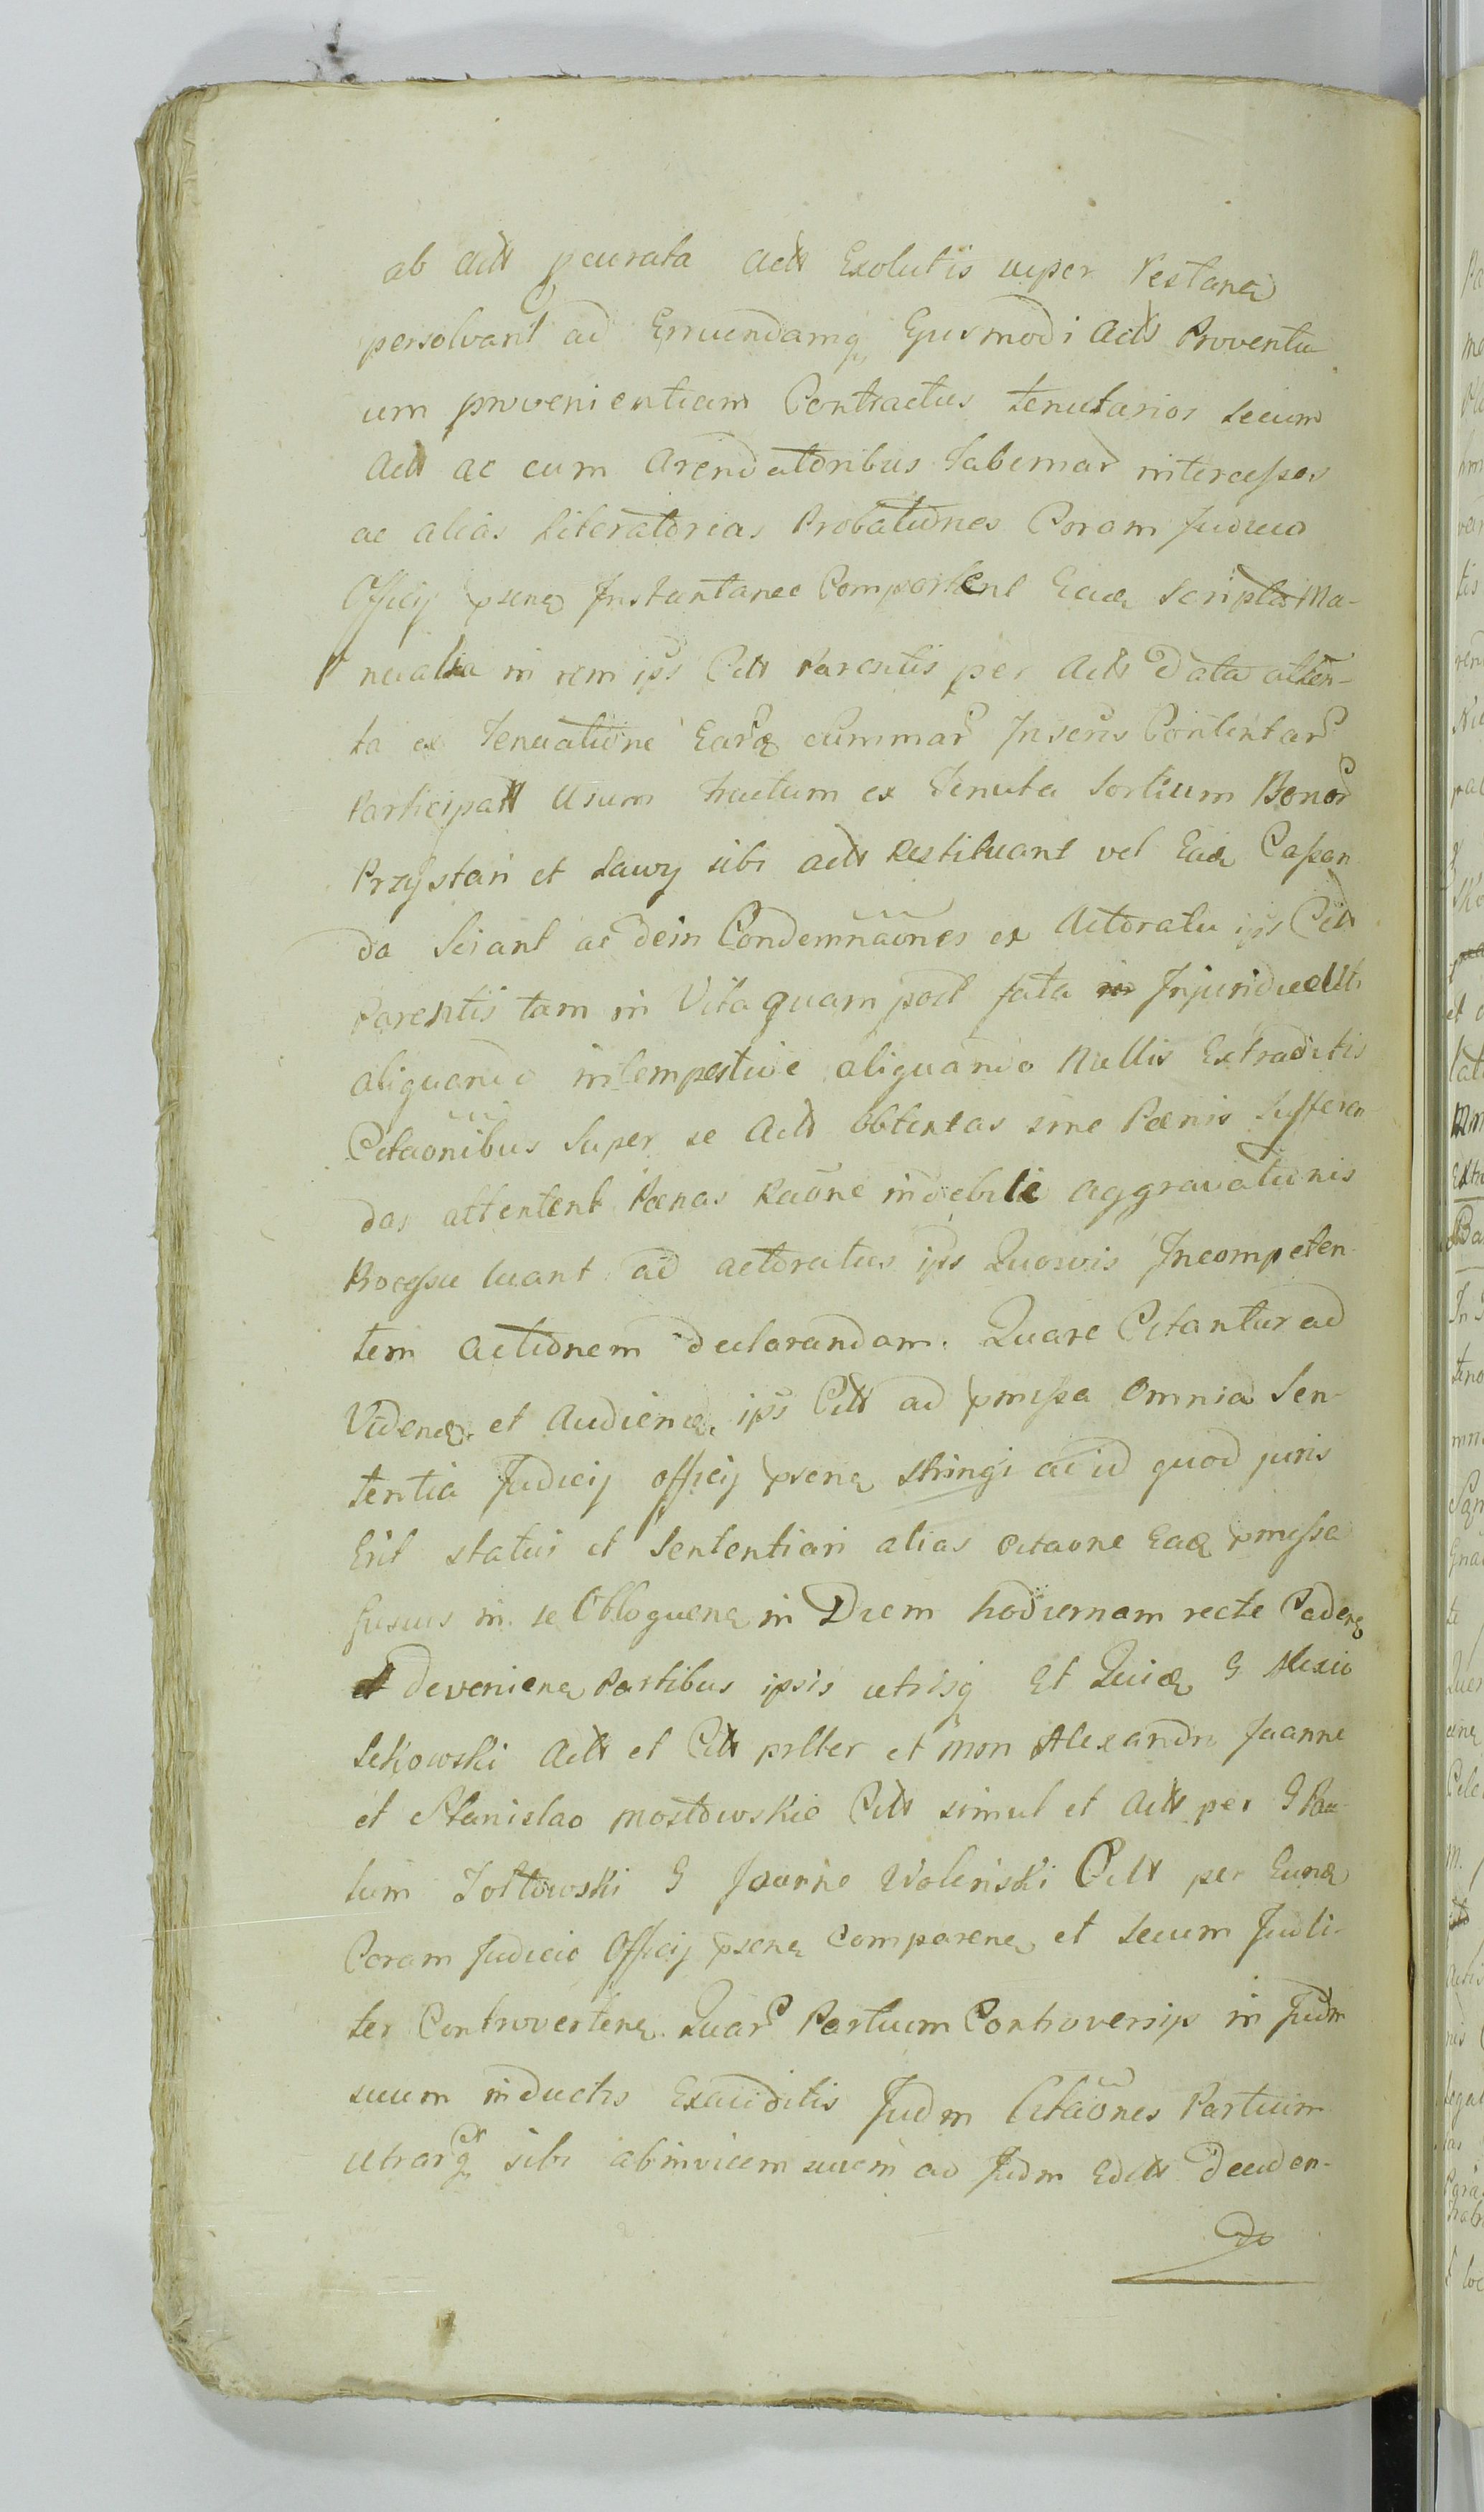 ab actt pcurata actt Exolutis super restane
persolvant ad Eruendamq Ejusmodi Actt Proventu
um provenientiam Contractus tenutarios secum
Actt ac cum Arendatoribus Tabernar intercessos
ac alias Literatorias Probationes Coram Judicio
Officij psene Instantanee Comportent Eade Scripta Ma-
nualia in rem ips Citt Parentis per Actt Data atten-
ta ex Tenutatione Earq summar Inseris Contentar
Participatt Usum fructum ex Tenuta Sortium Bonor
Przystan et Ławy sibi actt Restituant vel Eade Cassan
da Sciant ac dein Condemnaones ex Actoratu ips Citt
Parentis tam in Vita quam post fata in
aliquando intempestive aliquando Nullis Extraditis
Citaonibus Super se Actt Obtentas sine Pænis Sufferen
das attentent Pænas Raone indebite aggravationis
Processu luant ad actoratus ips Quosvis Incompeten
tem actionem declarandam. Quare Citantur ad
Videne et Audiene ips Citt ad pmissa Omnia Sen-
tentia Judicij officij psene stringi ac id quod juris
Erit statui et Sententiari alias citaone Eade pmissa
fusius in se Obloquene in Diem hodiernam recte Cadene
et deveniene Partibus ipsis utrisq Et Quide G Alexio
Sekowski Actt et Citt prlter et mon Alexandro Joanne
et Stanislao mostowskie Citt simul et Actt per G Pau-
lum Zołtowski G Joanne Wolinski Citt per Eunde
Coram Judicio Officij psene comparene et secum Judli-
ter Controvertene Quar Partium Controversijs in Judm
suum inductis Exauditis Judm Citaones Partium
utrarq sibi abinvicem suum ad Judm Editt Deciden-
do